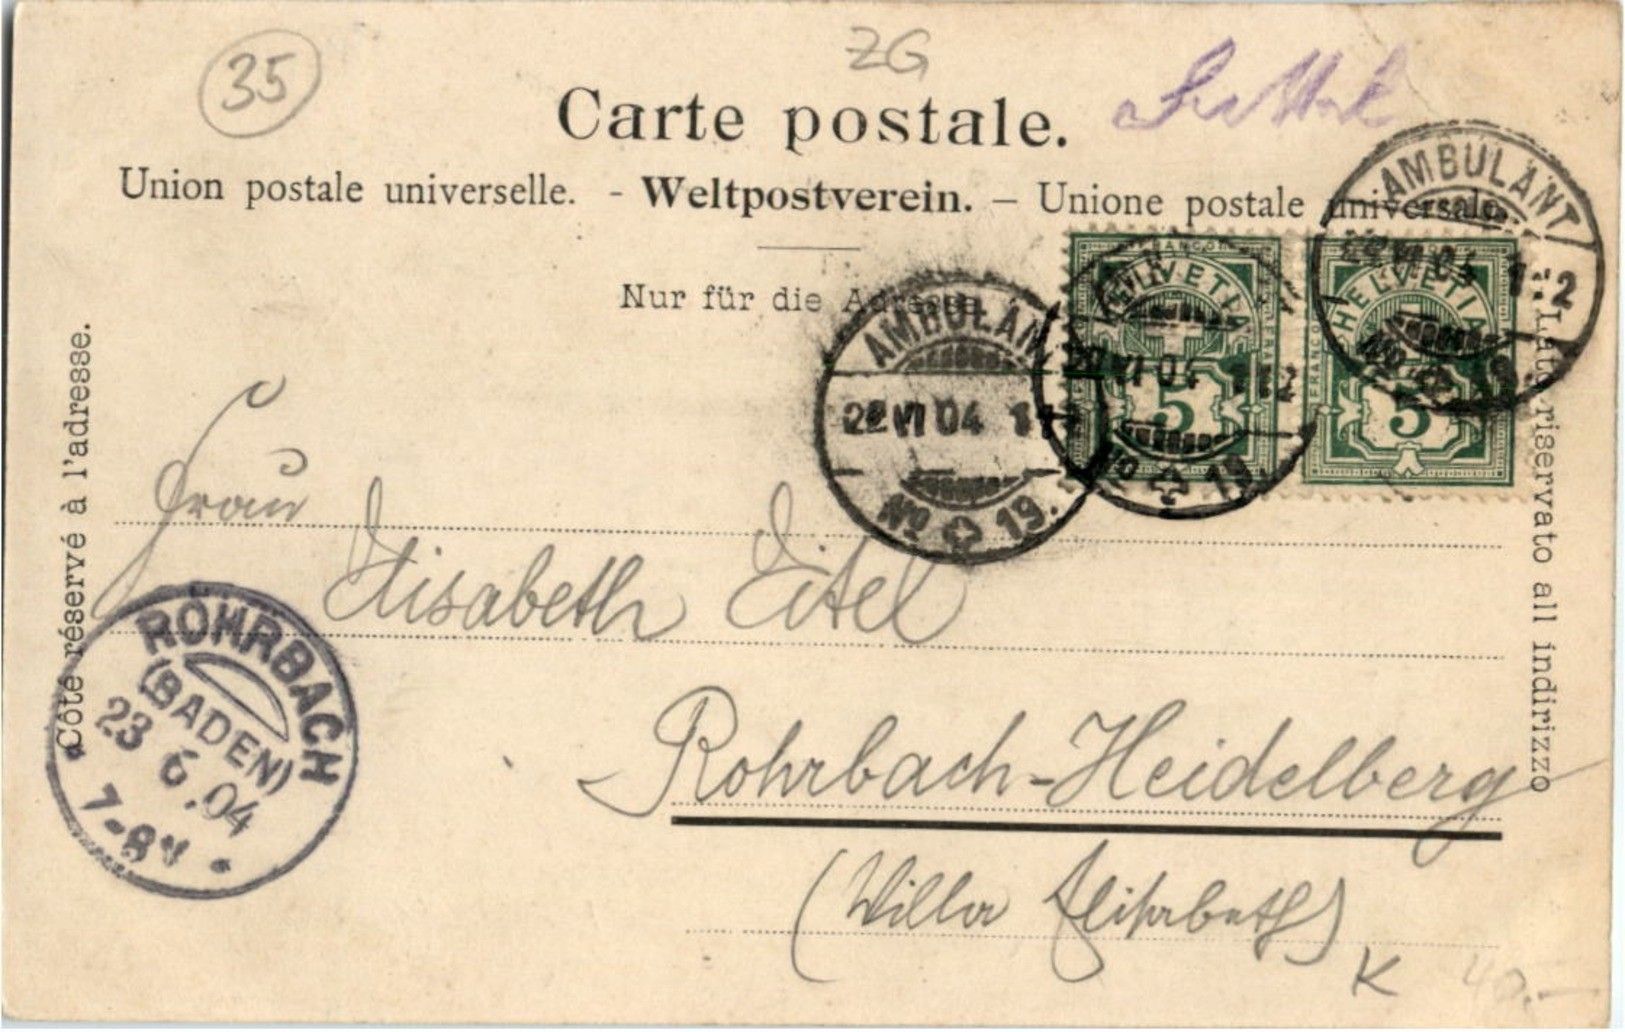 35
ZG
Carte postale.
Union postale universelle. - Weltpostverein. – Unione postale universale.
Nur für die Adresse.
Côté réservé à l'adresse.
Lato riservato all indirizzo
HELVETIA
FRANCO
5
HELVETIA
FRANCO
5
AMBULANT
22 VI 04
No 19.
AMBULANT
22 VI 04 112
No 19.
AMBULANT
22 VI 04 112
No 19.
Frau
Elisabeth Eitel
Rohrbach-Heidelberg
(Villa Elisabeth)
K
40.-
ROHRBACH
(BADEN)
23 6.04
7-8V